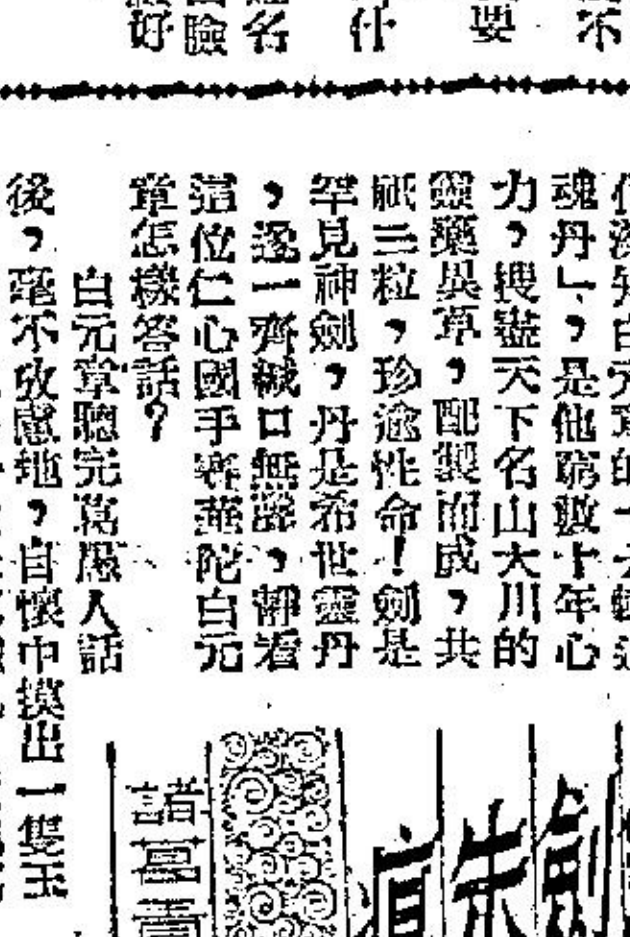 不
要
什
名
險
好
魂丹」,是他窮數十年心
力,搜盡天下名山大川的
靈藥異草,配製而成,共
祇三粒,珍逾性命!劍是
罕見神劍,丹是希世靈丹
,遂一齊緘口無譁,靜看
這位仁心國手賽華陀白元
章怎樣答話?
白元章聽完葛愚人話
後,毫不攷慮地,自懷中摸出一隻玉
劍朱痕
諸葛青